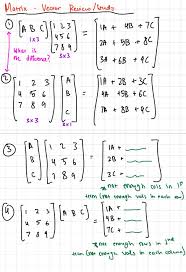 Matrix - Vector Review/Study
① [A B C] [1 2 3
4 5 6
7 8 9] = [1A + 4B + 7C
2A + 5B + 8C
3A + 6B + 9C]
1x3
3x3
What is
the difference?
② [1 2 3
4 5 6
7 8 9] [A
B
C] = [1A + 2B + 3C
4A + 5B + 6C
7A + 8B + 9C]
3x3
③ [A
B
C] [1 2 3
4 5 6
7 8 9] = [1A +
2B +
3C +
not enough cols in 1st
term (not enough vals in each row)
④ [1 2 3
4 5 6
7 8 9] [A B C] = [1A +
4B +
7C +
not enough rows in 2nd
term (not enough vals in each column)